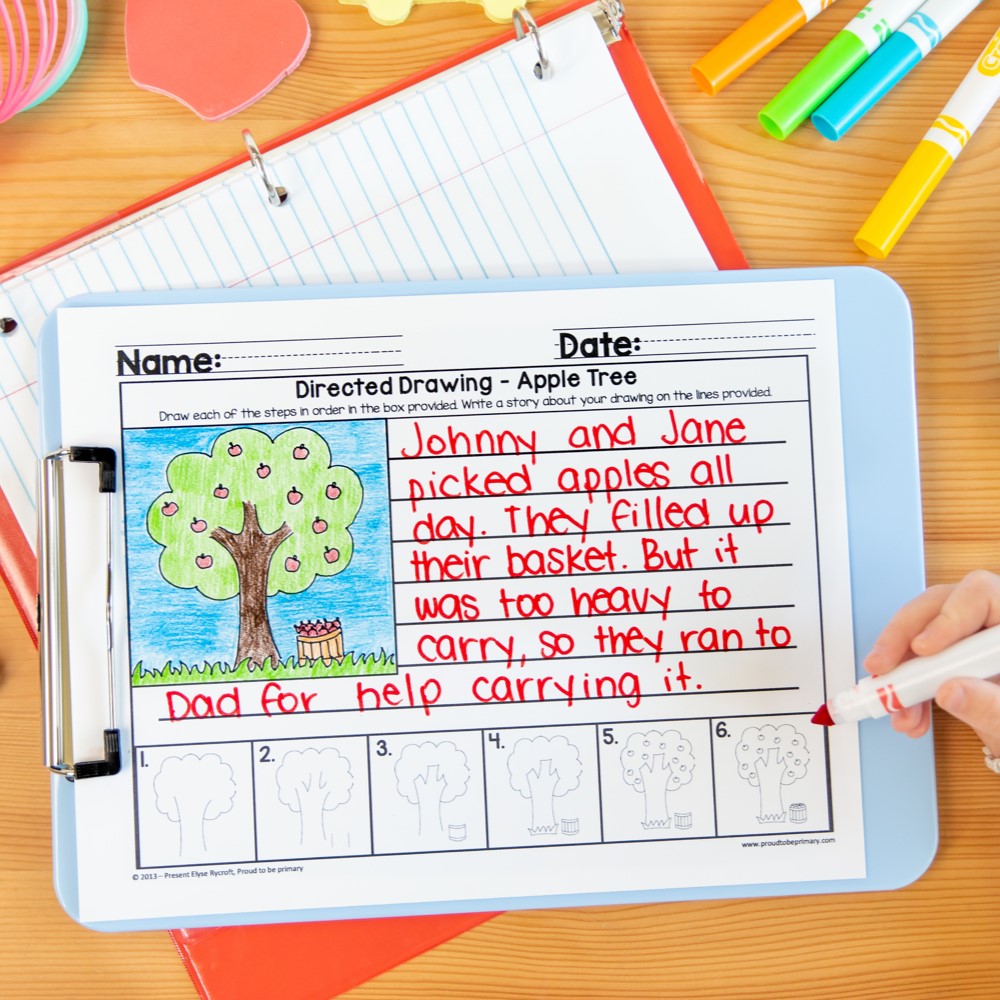 Name:
Date:
Directed Drawing - Apple Tree
Draw each of the steps in order in the box provided. Write a story about your drawing on the lines provided.
Johnny and Jane
picked apples all
day. They filled up
their basket. But it
was too heavy to
carry, so they ran to
Dad for help carrying it.
1.
2.
3.
4.
5.
6.
www.proudtobeprimary.com
© 2013 – Present Elyse Rycroft, Proud to be primary